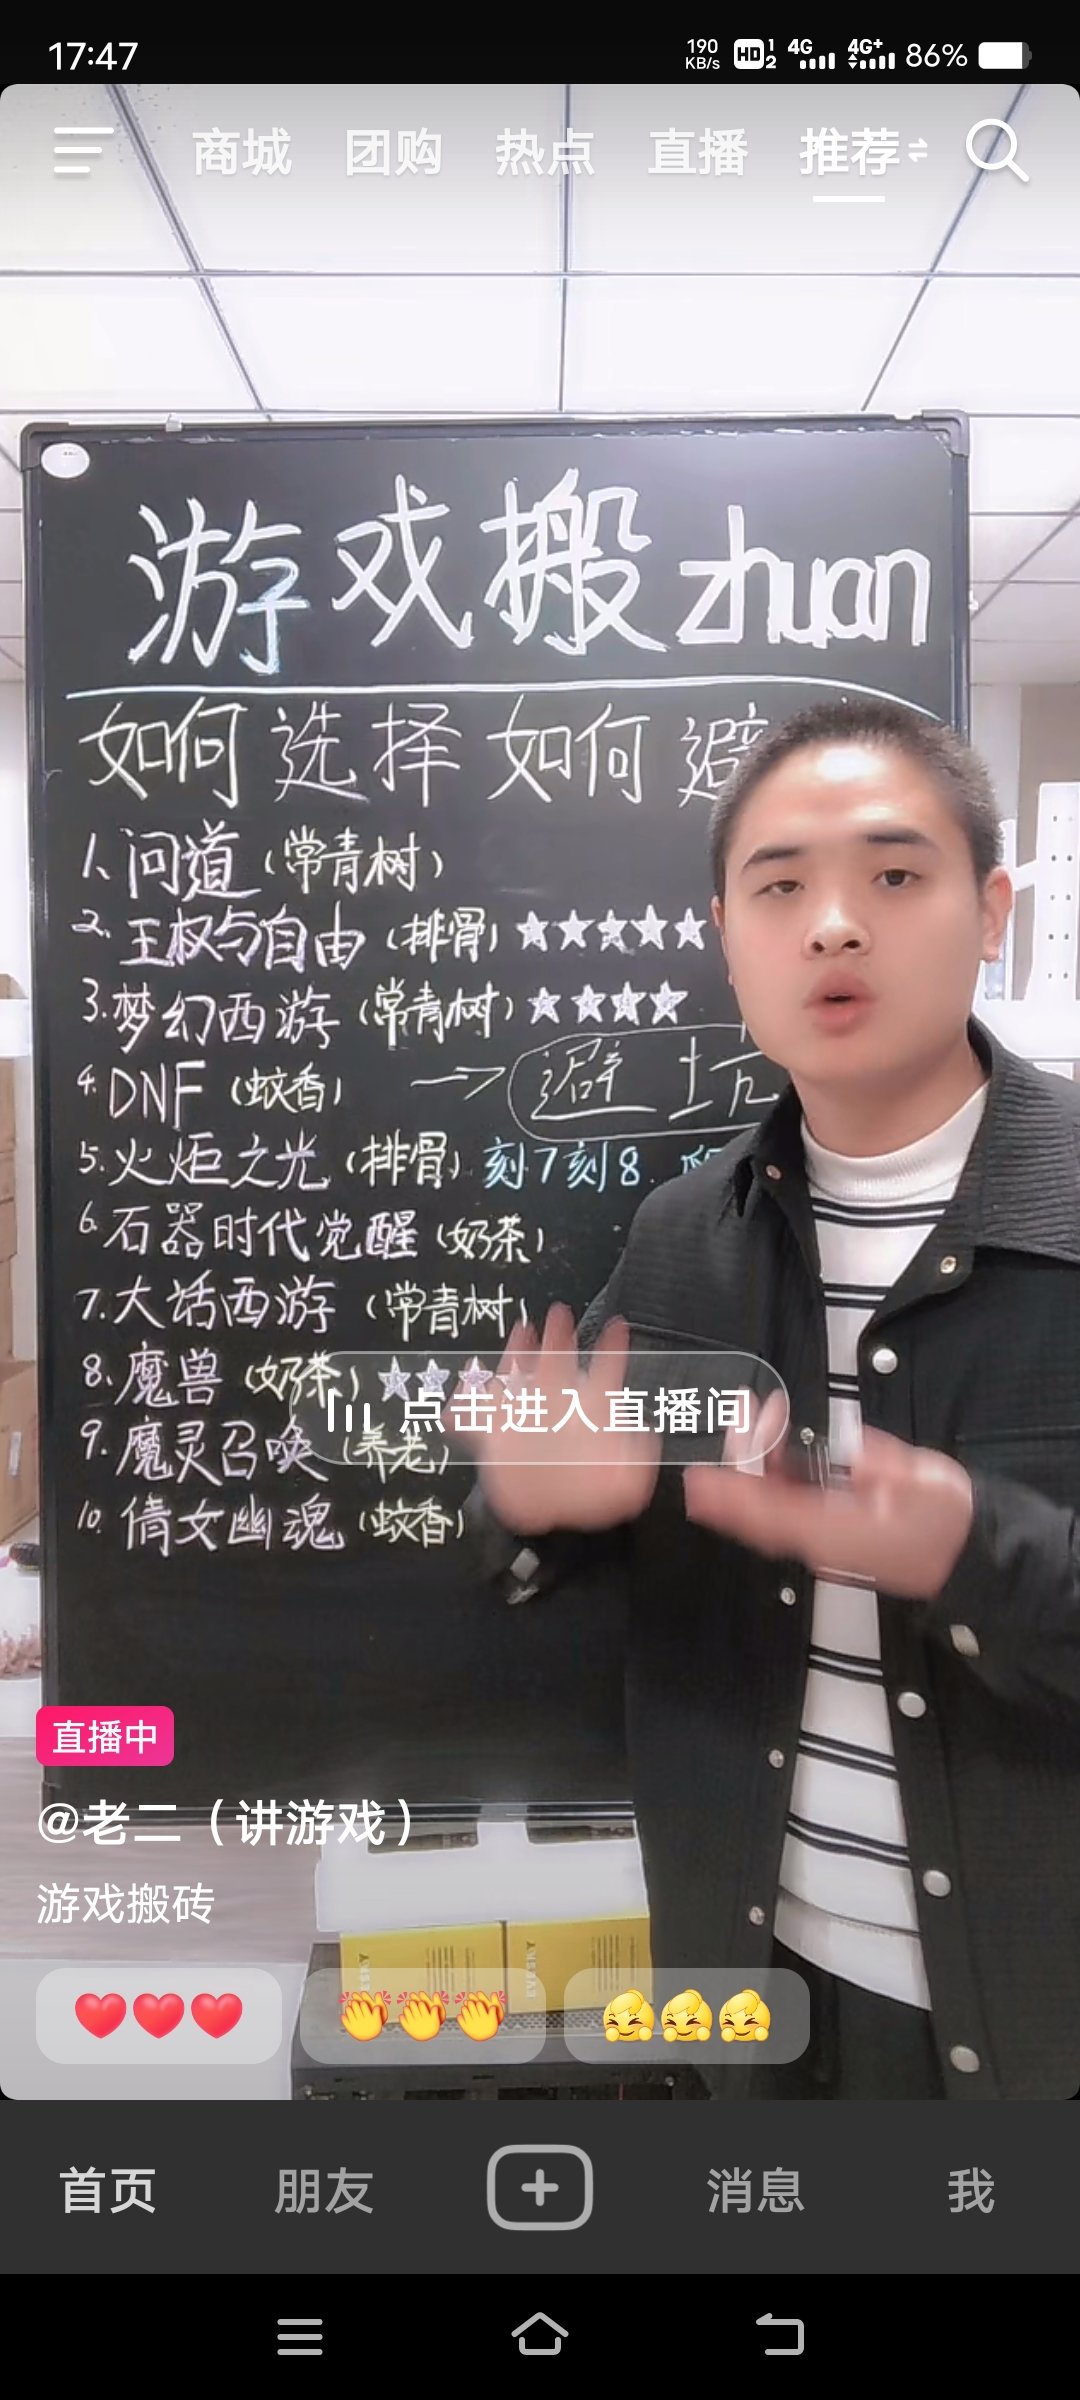 17:47
190 KB/s HD 1 2 4G 4G+ 86%
商城 团购 热点 直播 推荐
游戏搬zhuan
如何选择如何避
1、问道(常青树)
2、王权与自由(排骨)★★★★★
3.梦幻西游(常青树)★★★★
4.DNF(蚊香)→避坑
5.火炬之光(排骨)刻7刻8.
6.石器时代觉醒(奶茶)
7.大话西游(常青树)
8.魔兽(奶茶)★★★★
点击进入直播间
9.魔灵召唤(养老)
10.倩女幽魂(蚊香)
直播中
@老二（讲游戏）
游戏搬砖
❤️❤️❤️ 👏👏👏
首页 朋友 消息 我